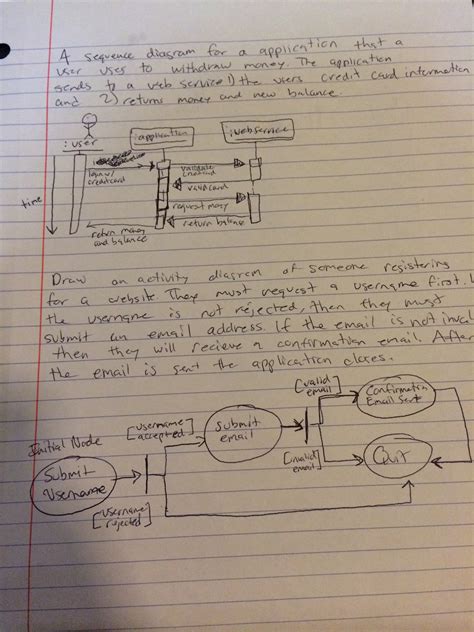 A sequence diagram for a application that a
user uses to withdraw money. The application
sends to a web service 1) the users credit card information
and 2) returns money and new balance.
: user
: application
: webservice
login w/
creditcard
validate
creditcard
valid card
request money
return balance
return money
and balance
time
Draw an activity diagram of someone registering
for a website. They must request a username first. I
the username is not rejected, then they must
submit an email address. If the email is not inval
then they will recieve a confirmation email. After
the email is sent the application closes.
Initial Node
Submit
Username
[username
accepted]
[username
rejected]
submit
email
[valid
email]
[invalid
email]
Confirmation
Email Sent
Quit